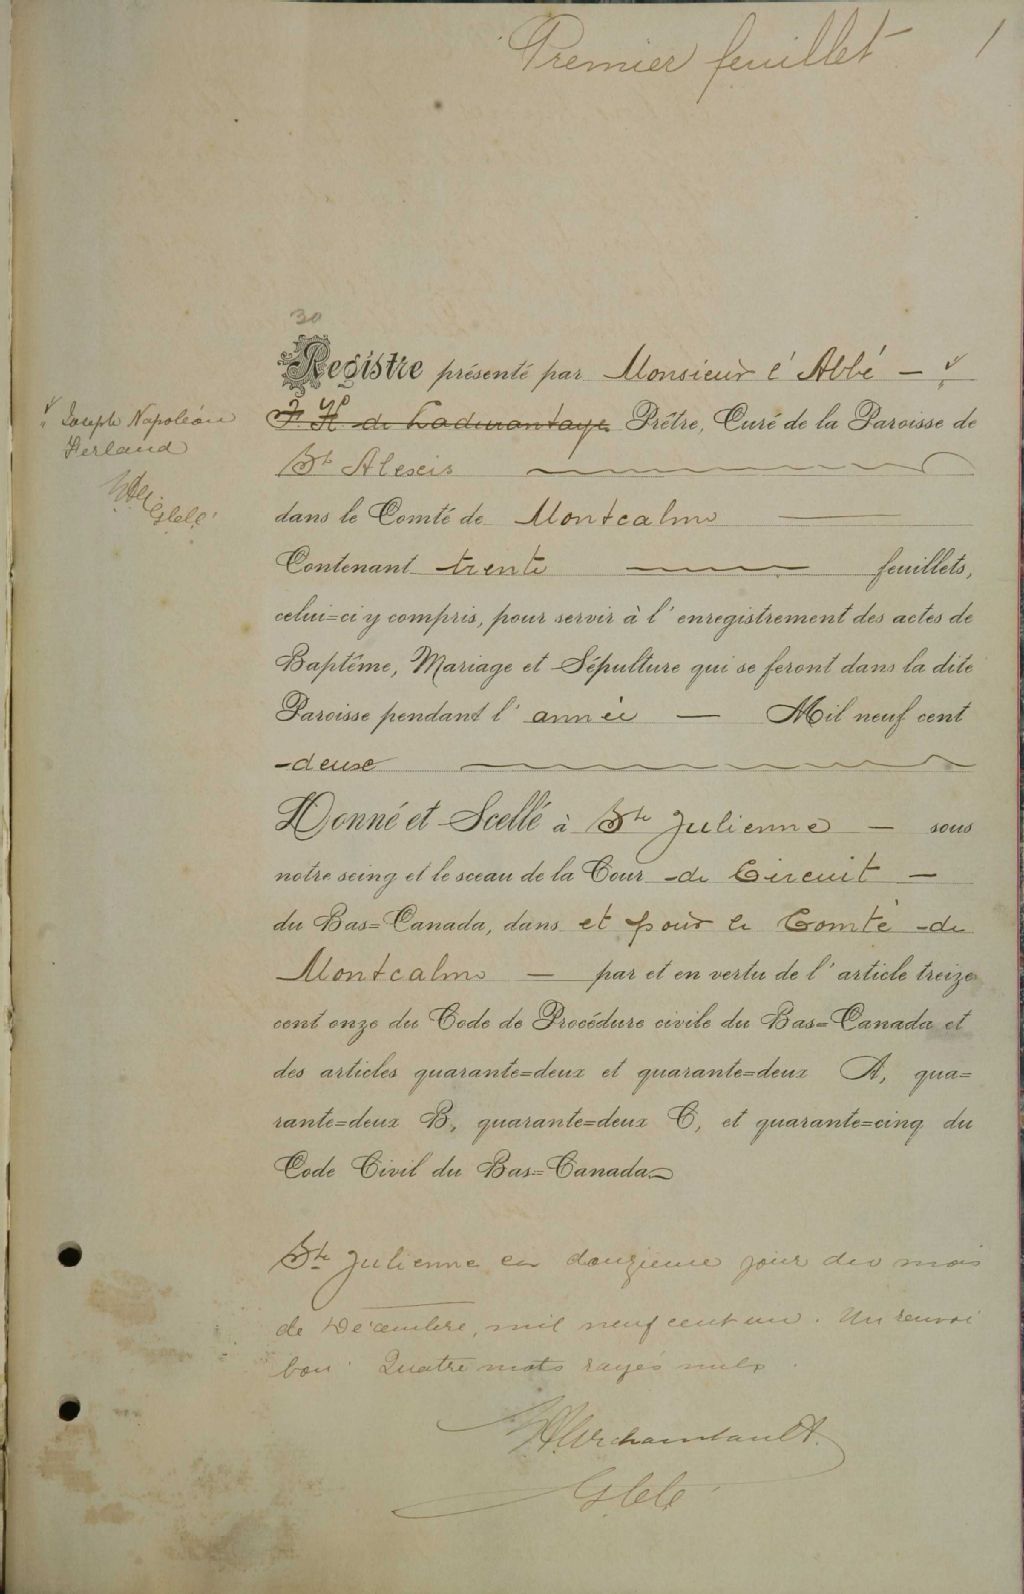 Premier feuillet 1
30
Registre présenté par Monsieur l'Abbé —
F. H. de Ladurantaye Prêtre, Curé de la Paroisse de
Joseph Napoléon
Ferland
St Alexis
dans le Comté de Montcalm
Contenant trente feuillets,
celui=ci y compris, pour servir à l'enregistrement des actes de
Baptême, Mariage et Sépulture qui se feront dans la dite
Paroisse pendant l'année — Mil neuf cent
deux
Donné et Scellé à Ste Julienne — sous
notre seing et le sceau de la Cour de Circuit —
du Bas=Canada, dans et pour le Comté de
Montcalm — par et en vertu de l'article treize
cent onze du Code de Procédure civile du Bas=Canada et
des articles quarante=deux et quarante=deux A, qua=
rante=deux B, quarante=deux C, et quarante=cinq du
Code Civil du Bas=Canada
Ste Julienne ce douzieme jour du mois
de Décembre, mil neuf cent un. Un renvoi
bon. Quatre mots rayés nuls.
Archambault